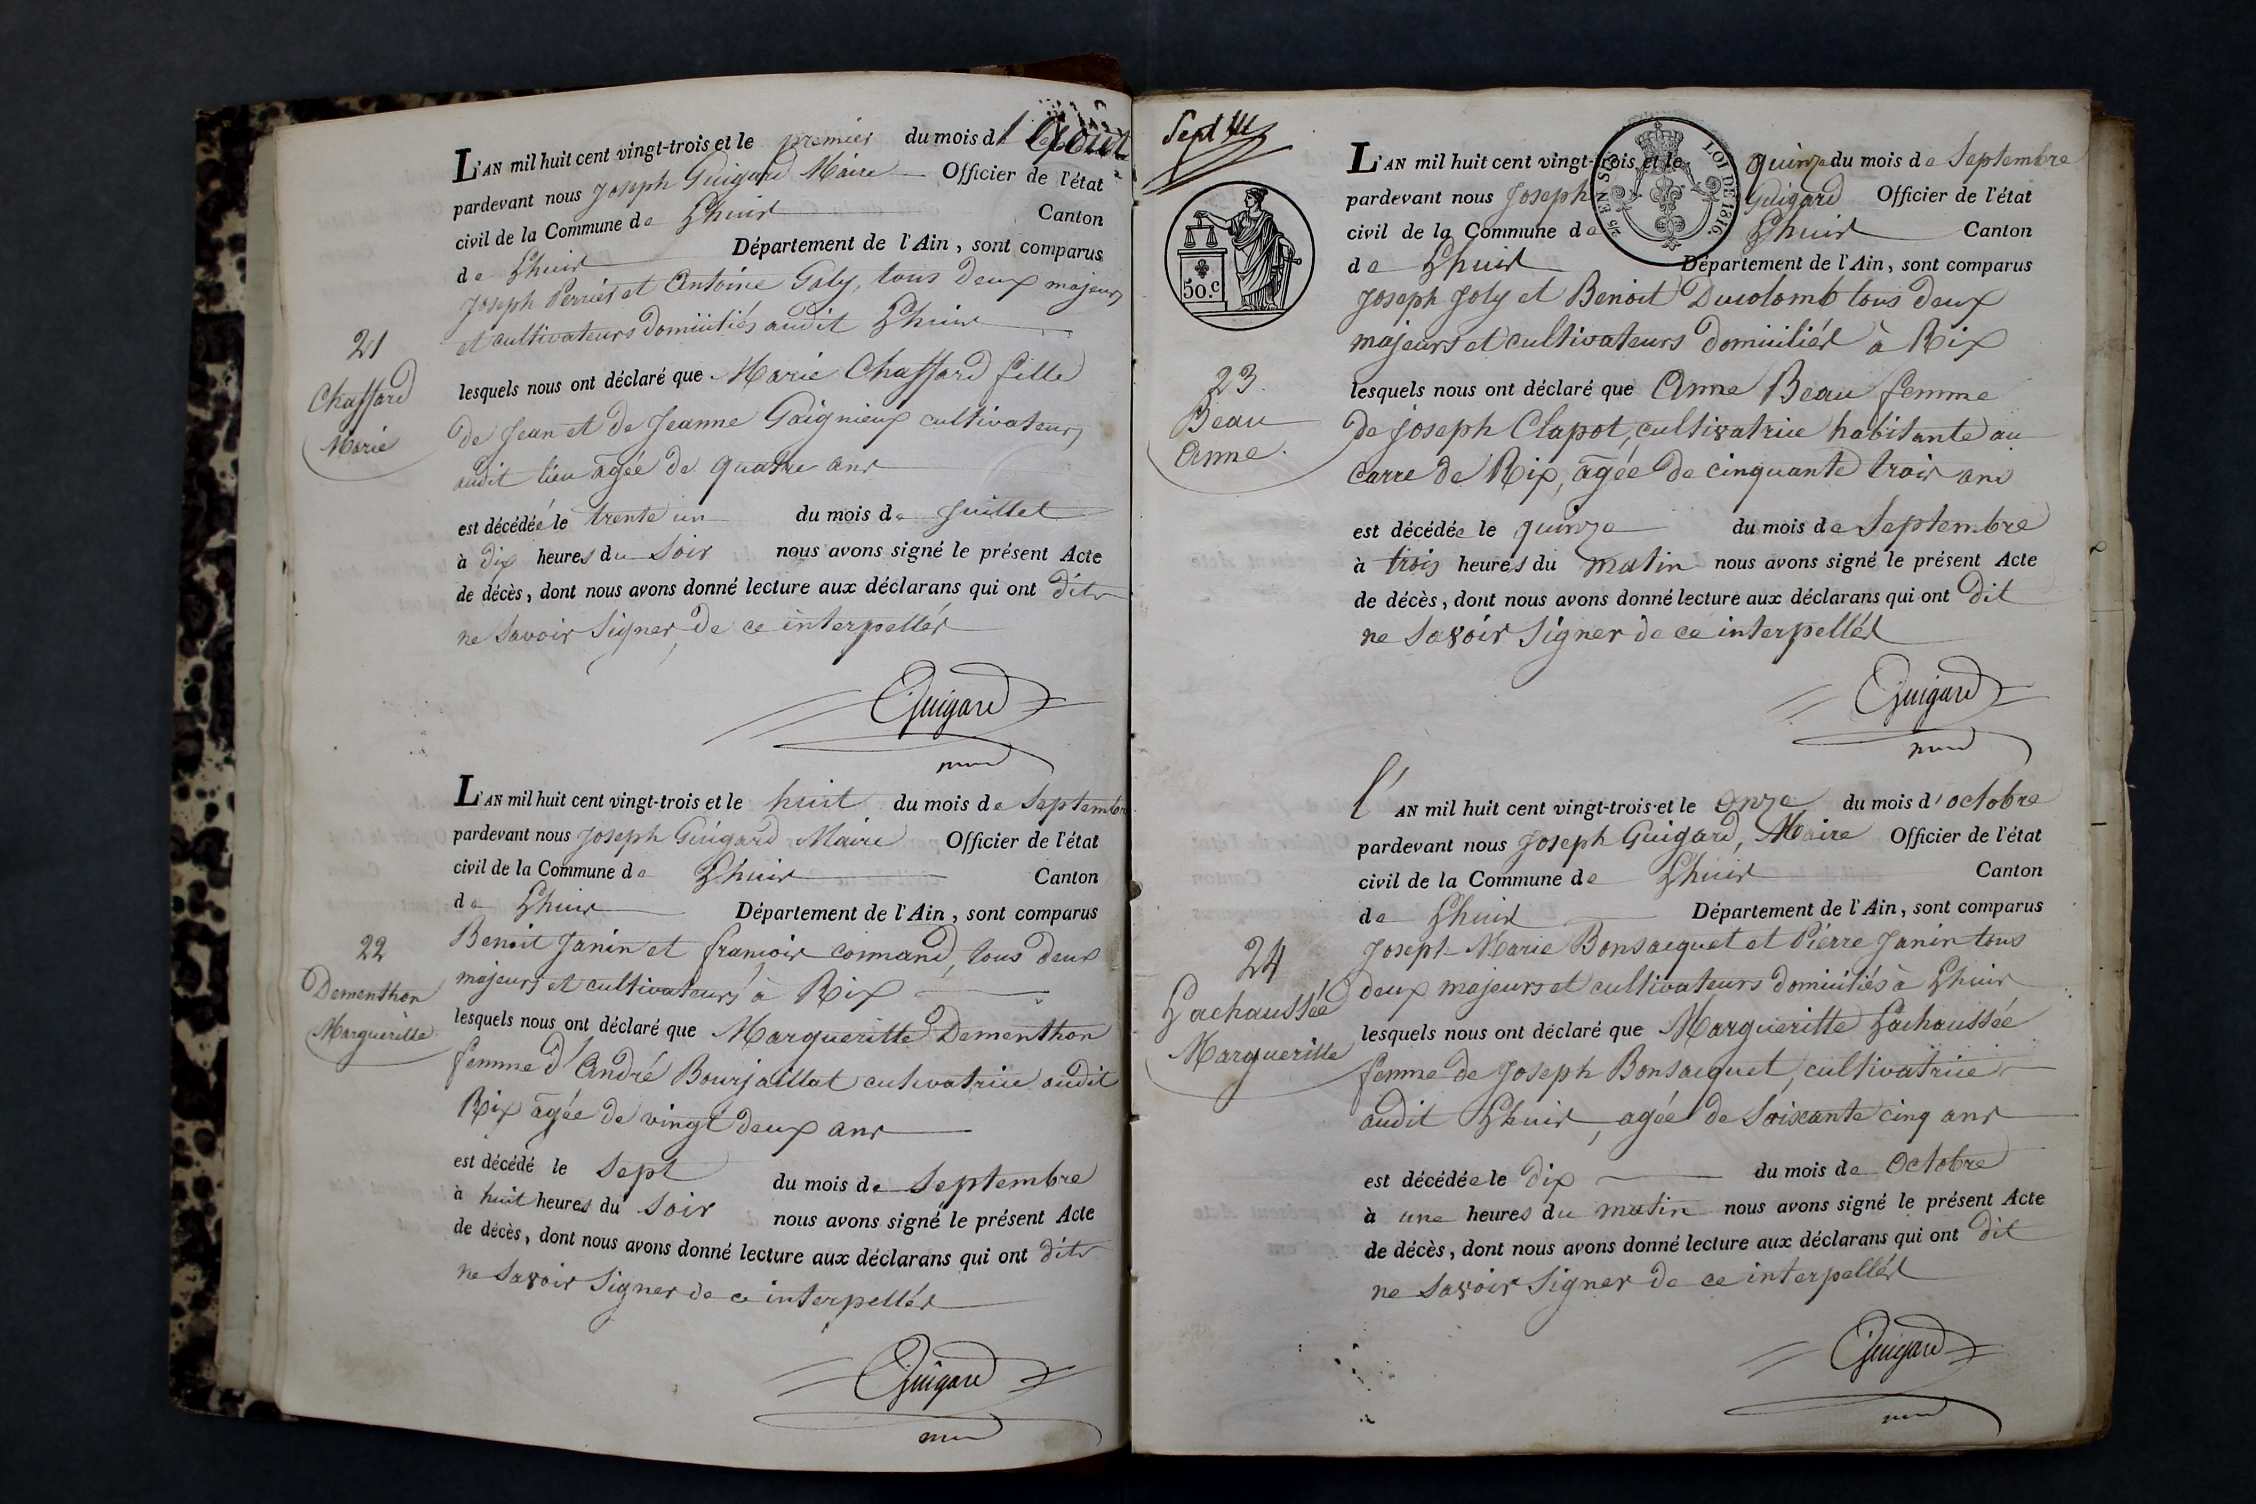 L'AN mil huit cent vingt-trois et le premier du mois d'août
pardevant nous Joseph Guigard Maire Officier de l'état
civil de la Commune de Lhuis Canton
de Lhuis Département de l'Ain, sont comparus
Joseph Perrier et Antoine Goly, tous deux majeurs
et cultivateurs domiciliés audit Lhuis
21
Chaffard
Marie
lesquels nous ont déclaré que Marie Chaffard fille
de Jean et de Jeanne Goignieux cultivateurs
audit lieu agée de quatre ans
est décédée le trente un du mois de Juillet
à dix heures du Soir nous avons signé le présent Acte
de décès, dont nous avons donné lecture aux déclarans qui ont dits
ne Savoir Signer de ce interpellés
Guigard
L'AN mil huit cent vingt-trois et le huit du mois de Septembre
pardevant nous Joseph Guigard Maire Officier de l'état
civil de la Commune de Lhuis Canton
de Lhuis Département de l'Ain, sont comparus
Benoit Janin et françois Cormand, tous deux
majeurs et cultivateurs à Rix
22
Dementhon
Margueritte
lesquels nous ont déclaré que Margueritte Dementhon
femme d'André Bourjaillat cultivatrice audit
Rix agée de vingt deux ans
est décédé le Sept du mois de Septembre
à huit heures du Soir nous avons signé le présent Acte
de décès, dont nous avons donné lecture aux déclarans qui ont dits
ne Savoir Signer de ce interpellés
Guigard
Sept
50.c
LOI DE 1816.
L'AN mil huit cent vingt-trois et le quinze du mois de Septembre
pardevant nous Joseph Guigard Officier de l'état
civil de la Commune de Lhuis Canton
de Lhuis Département de l'Ain, sont comparus
Joseph Joly et Benoit Ducolomb tous deux
majeurs et cultivateurs domiciliés à Rix
23.
Beau
Anne.
lesquels nous ont déclaré que Anne Beau femme
de Joseph Clapot, cultivatrice habitante au
carre de Rix, agée de cinquante trois ans
est décédée le quinze du mois de Septembre
à trois heures du matin nous avons signé le présent Acte
de décès, dont nous avons donné lecture aux déclarans qui ont dit
ne Savoir Signer de ce interpellés
Guigard
L'AN mil huit cent vingt-trois et le onze du mois d'octobre
pardevant nous Joseph Guigard, Maire Officier de l'état
civil de la Commune de Lhuis Canton
de Lhuis Département de l'Ain, sont comparus
Joseph Marie Bonsacquet et Pierre Janin tous
deux majeurs et cultivateurs domiciliés à Lhuis
24
Lachaussée
Margueritte
lesquels nous ont déclaré que Margueritte Lachaussée
femme de Joseph Bonsacquet, cultivatrice
audit Lhuis, agée de Soixante cinq ans
est décédée le dix du mois de Octobre
à une heures du matin nous avons signé le présent Acte
de décès, dont nous avons donné lecture aux déclarans qui ont dit
ne Savoir Signer de ce interpellés
Guigard